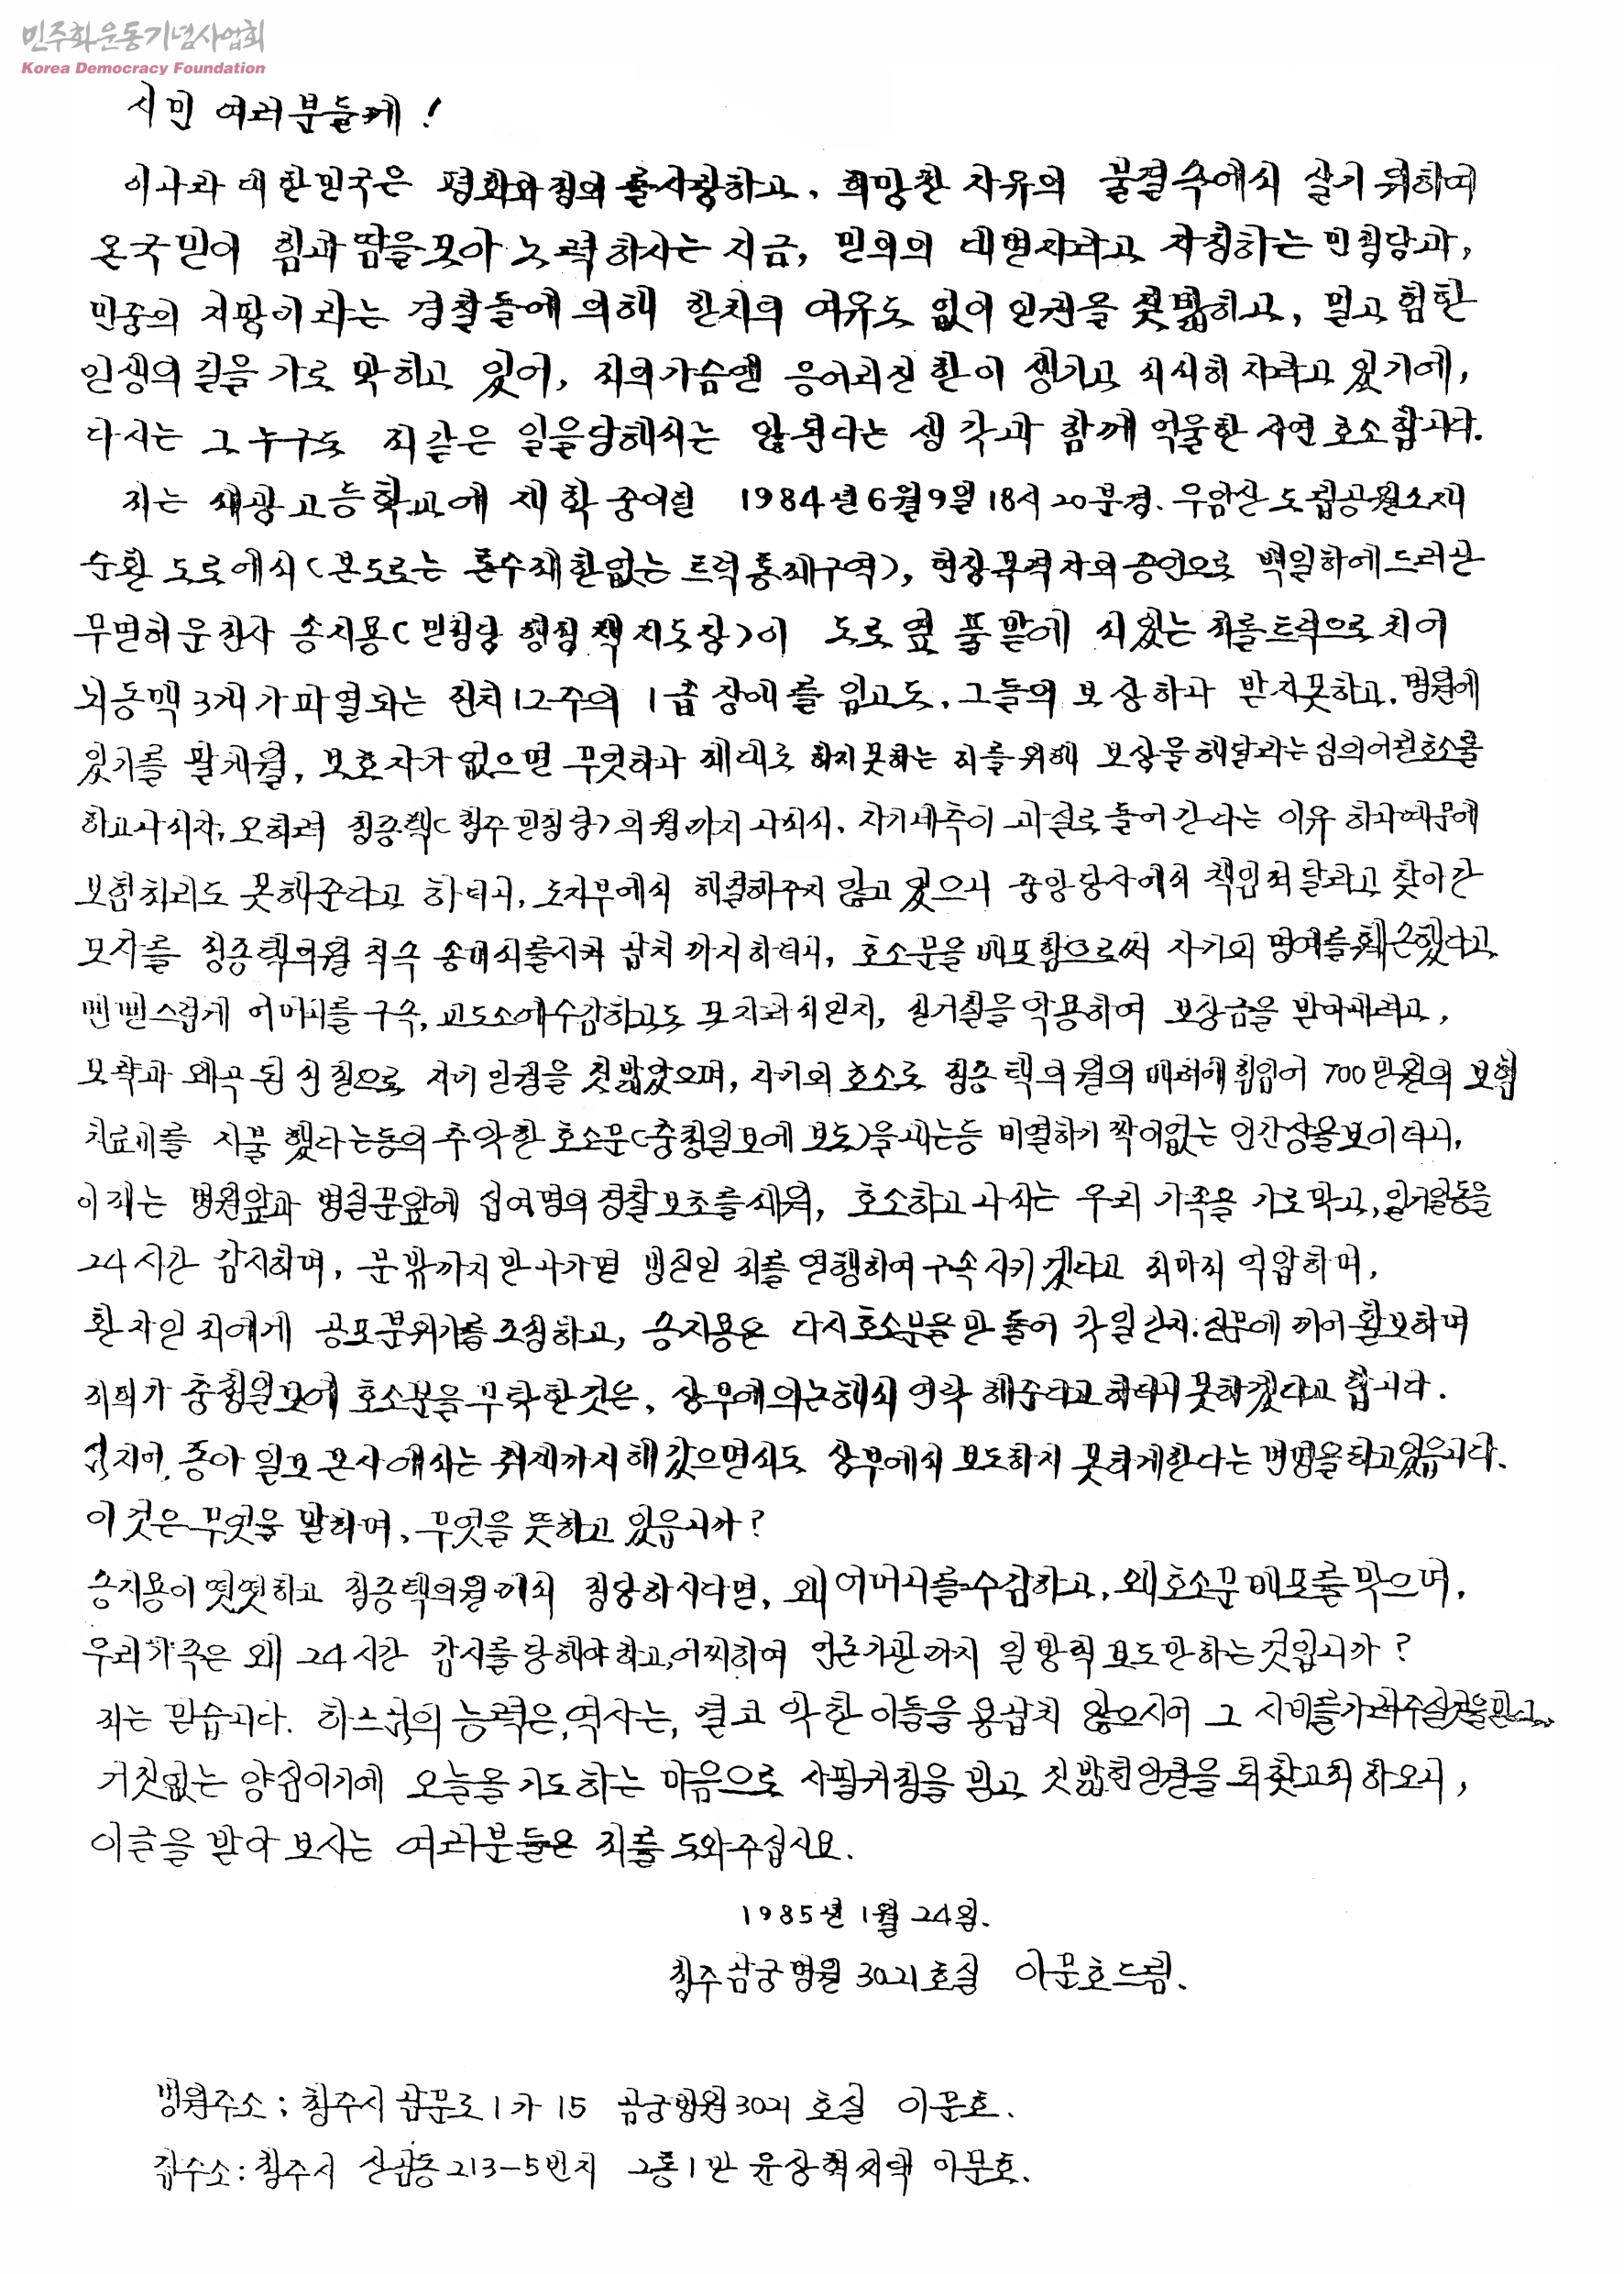 민주화운동기념사업회
Korea Democracy Foundation
시민 여러분들께!
이나라 대한민국은 평화와 정의를 사랑하고, 희망찬 자유의 물결속에서 살기 위하여
온국민이 힘과 땀을 모아 노력하시는 지금, 민의의 대변자라고 자칭하는 민정당과,
민중의 지팡이라는 경찰들에 의해 한치의 여유도 없이 인권을 짓밟히고, 멀고 험한
인생의 길을 가로 막히고 있어, 저의가슴엔 응어리진 한이 생기고 서서히 자라고 있기에,
다시는 그 누구도 저같은 일을당해서는 않된다는 생각과 함께 억울한 사연 호소합니다.
저는 세광고등학교에 재학 중이던 1984년 6월 9일 18시 20분경. 우암산 도립공원소재
순환 도로에서 (본도로는 톤수제한없는 트럭통제구역), 현장목격자의 증언으로 백일하에 드러난
무면허 운전사 송지용(민정당 행정책 지도장)이 도로 옆 풀밭에 서있는 저를 트럭으로 치어
뇌동맥 3개가 파열되는 전치 12주의 1급 장애를 입고도, 그들의 보상하나 받지못하고, 병원에
있기를 팔개월, 보호자가 없으면 무엇하나 제대로 하지못하는 저를 위해 보상을 해달라는 심의어린호소를
하고나서자, 오히려 정종택(청주 민정당)의원까지 나서서, 자기네측이 과실로 들어간다는 이유 하나때문에
보험처리도 못해준다고 하더니, 도지부에서 해결해주지 않고 있으니 중앙당사에서 책임져달라고 찾아간
모자를 정종택의원 직속 송비서를시켜 납치 까지하더니, 호소문을 배포함으로써 자기의 명예를훼손했다고
뻔뻔스럽게 어머니를 구속, 교도소에수감하고도 모자라서인지, 실거철을 악용하여 보상금을 받아내려고,
모략과 왜곡 된 선전으로 저이 인권을 짓밟았으며, 자기의 호소로 정종택의원의 배려에 힘입어 700만원의 보험
치료비를 지불 했다는등의 추악한 호소문(충청일보에 보도)을내는등 비열하기 짝이없는 인간상을보이더니,
이제는 병원앞과 병실문앞에 십여명의 경찰보초를세워, 호소하고 나서는 우리 가족을 가로막고, 일거일동을
24시간 감시하며, 문밖까지만 나가면 병신인 저를 연행하여 구속시키겠다고 저마저 억압하며,
환자인 저에게 공포분위기를 조성하고, 송지용은 다시호소문을 만들어 각 일간지.신문에 끼어 활보하며
저희가 충청일보에 호소문을 부탁한것은, 상부에의논해서 연락 해준다고하더니 못하겠다고 합니다.
심지어, 중아 일보 본사에서는 취재까지 해갔으면서도 상부에서 보도하지 못하게한다는 변명을하고있읍니다.
이것은 무엇을 말하며, 무엇을 뜻하고 있읍니까?
송지용이 떳떳하고 정종택의원께서 정당하시다면, 왜 어머니를 수감하고, 왜 호소문 배포를 막으며,
우리가족은 왜 24시간 감시를 당해야 하고, 어찌하여 언론기관까지 일방적 보도만하는것입니까?
저는 믿습니다. 하느님의 능력은, 역사는, 결코 악한 이들을 용납치 않으시어 그 시비를가려주실것을믿고,
거짓없는 양심이기에 오늘을 기도하는 마음으로 사필귀정을 믿고 짓밟힌인권을 되찾고저 하오니,
이글을 받아 보시는 여러분들은 저를 도와주십시요.
1985년 1월 24일.
청주 남궁병원 302호실 이문호드림.
병원주소 ; 청주시 남문로 1가 15 남궁병원 302 호실 이문호.
집주소 : 청주시 산남동 213-5번지 2통 1반 윤상혁씨댁 이문호.